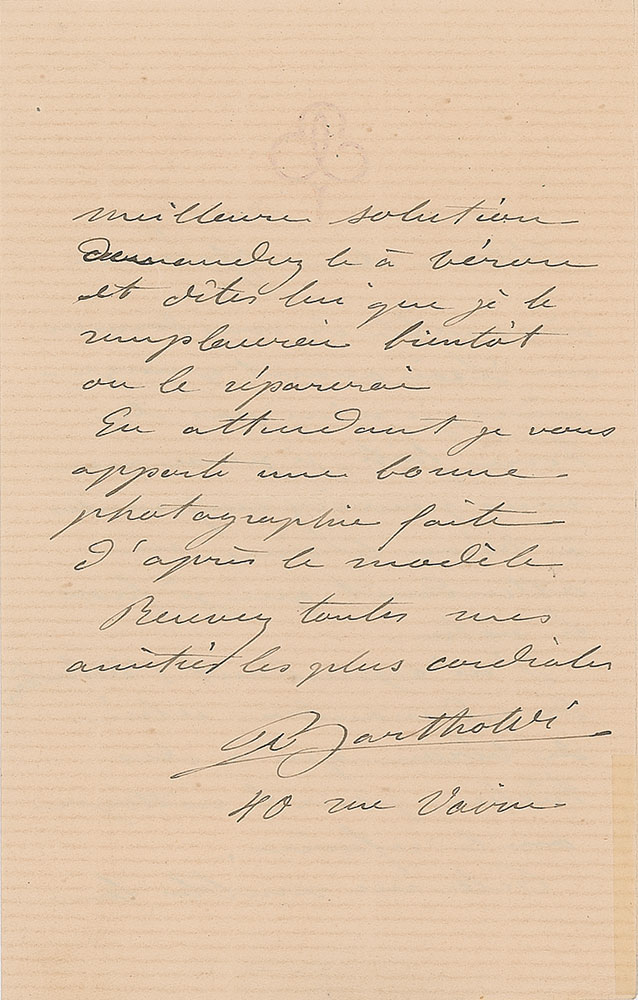 meilleure solution
demandez le à Véron
et dites lui que je le
remplacerai bientôt
ou le réparerai
En attendant je vous
apporte une bonne
photographie faite
d'après le modèle
Recevez toutes mes
amitiés les plus cordiales
Bartholdi
40 rue Vavin